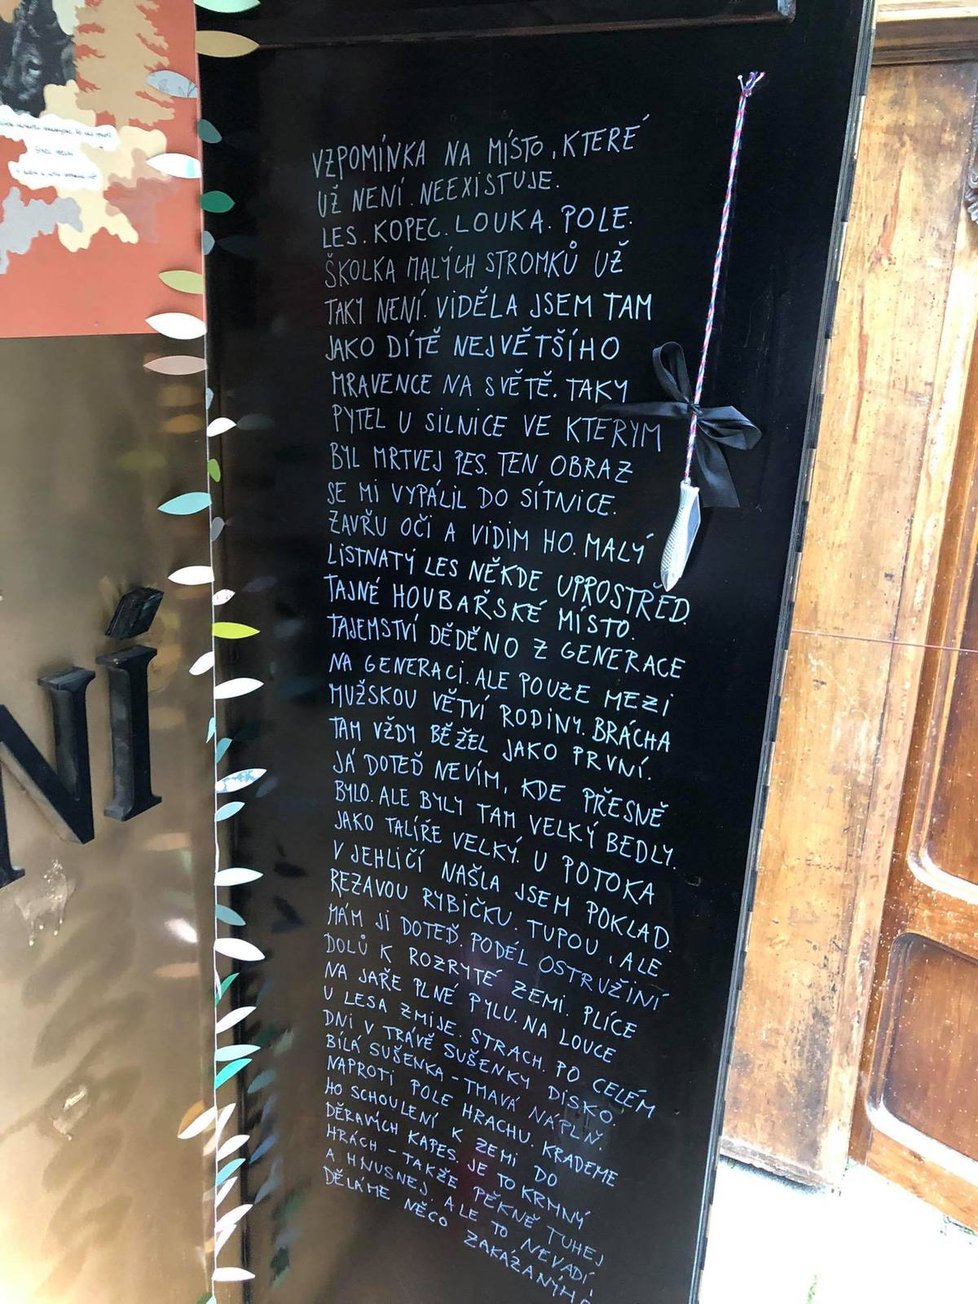 VZPOMÍNKA NA MÍSTO, KTERÉ
UŽ NENÍ. NEEXISTUJE.
LES. KOPEC. LOUKA. POLE.
ŠKOLKA MALÝCH STROMKŮ UŽ
TAKY NENÍ. VIDĚLA JSEM TAM
JAKO DÍTĚ NEJVĚTŠÍHO
MRAVENCE NA SVĚTĚ. TAKY
PYTEL U SILNICE VE KTERYM
BYL MRTVEJ PES. TEN OBRAZ
SE MI VYPÁLIL DO SÍTNICE.
ZAVŘU OČI A VIDIM HO. MALÝ
LISTNATÝ LES NĚKDE UPROSTŘED.
TAJNÉ HOUBAŘSKÉ MÍSTO.
TAJEMSTVÍ DĚDĚNO Z GENERACE
NA GENERACI. ALE POUZE MEZI
MUŽSKOU VĚTVÍ RODINY. BRÁCHA
TAM VŽDY BĚŽEL JAKO PRVNÍ.
JÁ DOTEĎ NEVÍM, KDE PŘESNĚ
BYLO. ALE BYLY TAM VELKÝ BEDLY.
JAKO TALÍŘE VELKÝ. U POTOKA
V JEHLIČÍ NAŠLA JSEM POKLAD.
REZAVOU RYBIČKU. TUPOU, ALE
MÁM JI DOTEĎ. PODÉL OSTRUŽINÍ
DOLŮ K ROZRYTÉ ZEMI. PLÍCE
NA JAŘE PLNÉ PYLU. NA LOUCE
U LESA ZMIJE. STRACH. PO CELÉM
DNI V TRÁVĚ SUŠENKY DISKO.
BÍLÁ SUŠENKA - TMAVÁ NÁPLŇ.
NAPROTI POLE HRACHU. KRADEME
HO SCHOULENÍ K ZEMI DO
DĚRAVÝCH KAPES. JE TO KRMNÝ
HRÁCH - TAKŽE PĚKNĚ TUHEJ
A HNUSNEJ. ALE TO NEVADÍ,
DĚLÁME NĚCO ZAKÁZANÝHO
NÍ